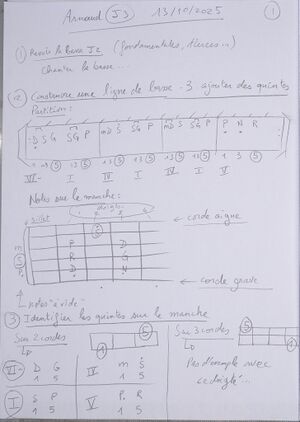 Arnaud J3 13/10/2025 1
1 Revoir la base J2 (fondamentales, tierces...)
Chanter la basse...
2 Construire une ligne de basse - 3 ajouter des quintes
Partition:
D S G SG P mD S SG P mD SG P P N R
1 5 1 3 5
VI- I IV I IV I V
Notes sur le manche:
sillet doigts
← corde aigue
m S
P D
S R G
D N
← corde grave
Notes "à vide"
3 Identifier les quintes sur le manche
Sur 2 cordes 5 1
Sur 3 cordes 5 1
VI- D G IV m S
1 5 1 5
I S P V P R
1 5 1 5
Pas d'exemple avec
ce doigté...